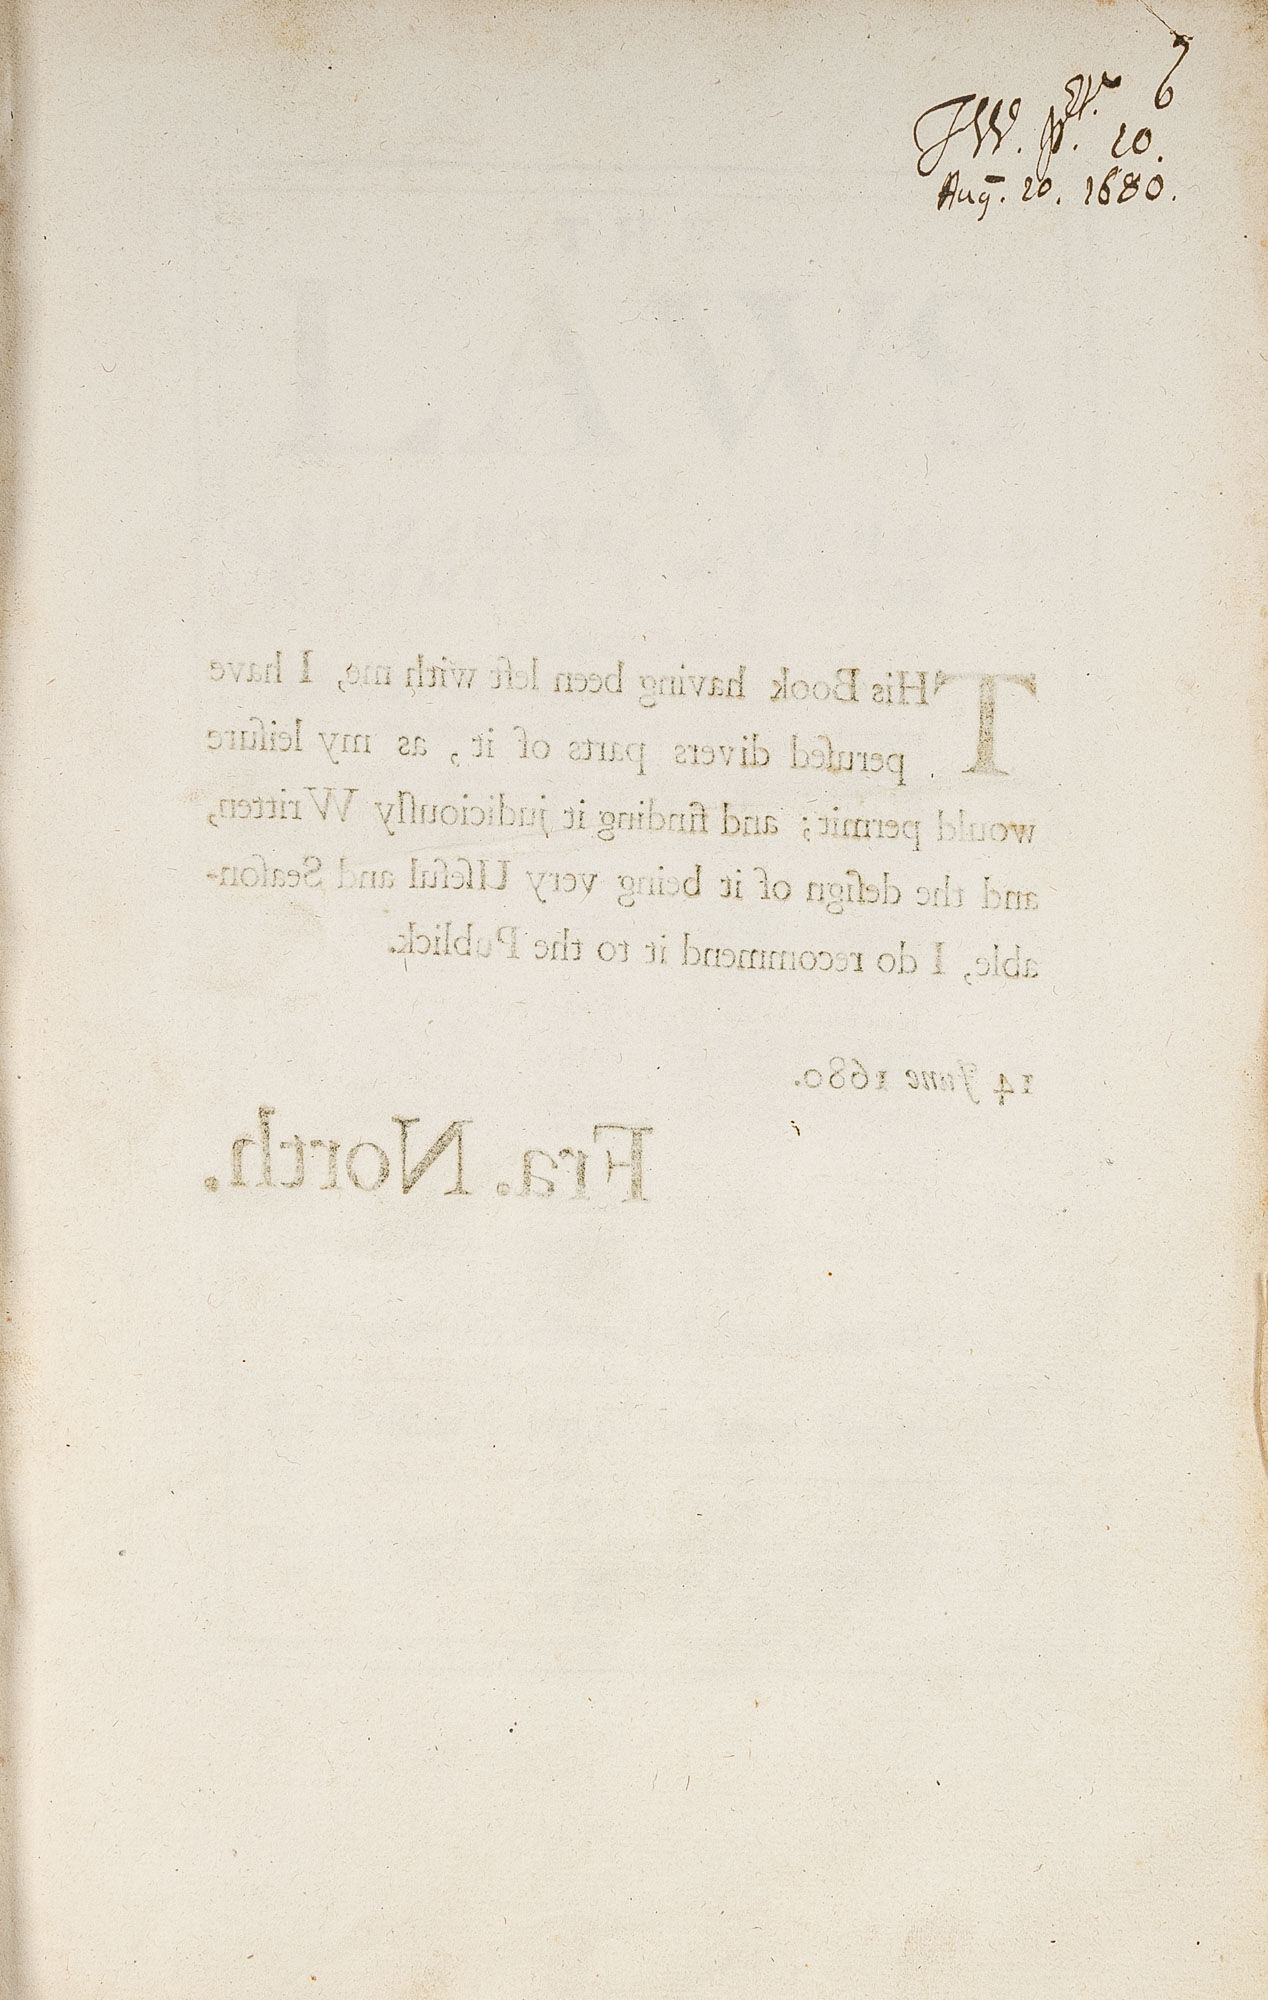 JW. pr. 10.
Aug. 20. 1680.
LAWS
THis Book having been left with me, I have
peruſed divers parts of it, as my leiſure
would permit; and finding it judiciouſly Written,
and the deſign of it being very Uſeful and Seaſon-
able, I do recommend it to the Publick.
14 June 1680.
Fra. North.